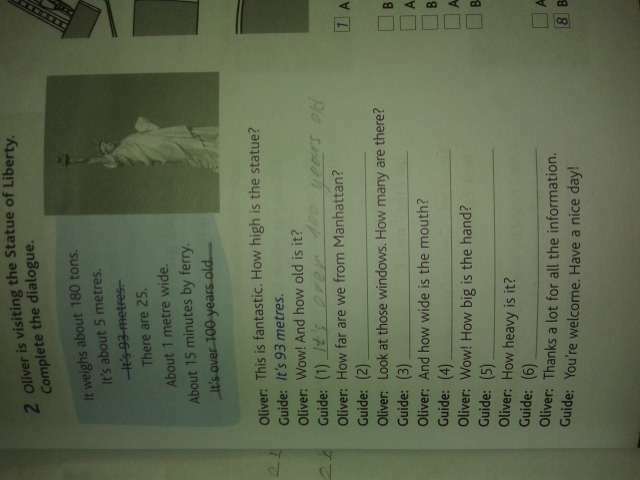 2 Oliver is visiting the Statue of Liberty.
Complete the dialogue.
It weighs about 180 tons.
It's about 5 metres.
It's 93 metres.
There are 25.
About 1 metre wide.
About 15 minutes by ferry.
It's over 100 years old.
Oliver: This is fantastic. How high is the statue?
Guide: It's 93 metres.
Oliver: Wow! And how old is it?
Guide: (1) It's over 100 years old
Oliver: How far are we from Manhattan?
Guide: (2)
Oliver: Look at those windows. How many are there?
Guide: (3)
Oliver: And how wide is the mouth?
Guide: (4)
Oliver: Wow! How big is the hand?
Guide: (5)
Oliver: How heavy is it?
Guide: (6)
Oliver: Thanks a lot for all the information.
Guide: You're welcome. Have a nice day!
1 A
B
A
B
A
B
A
8 B